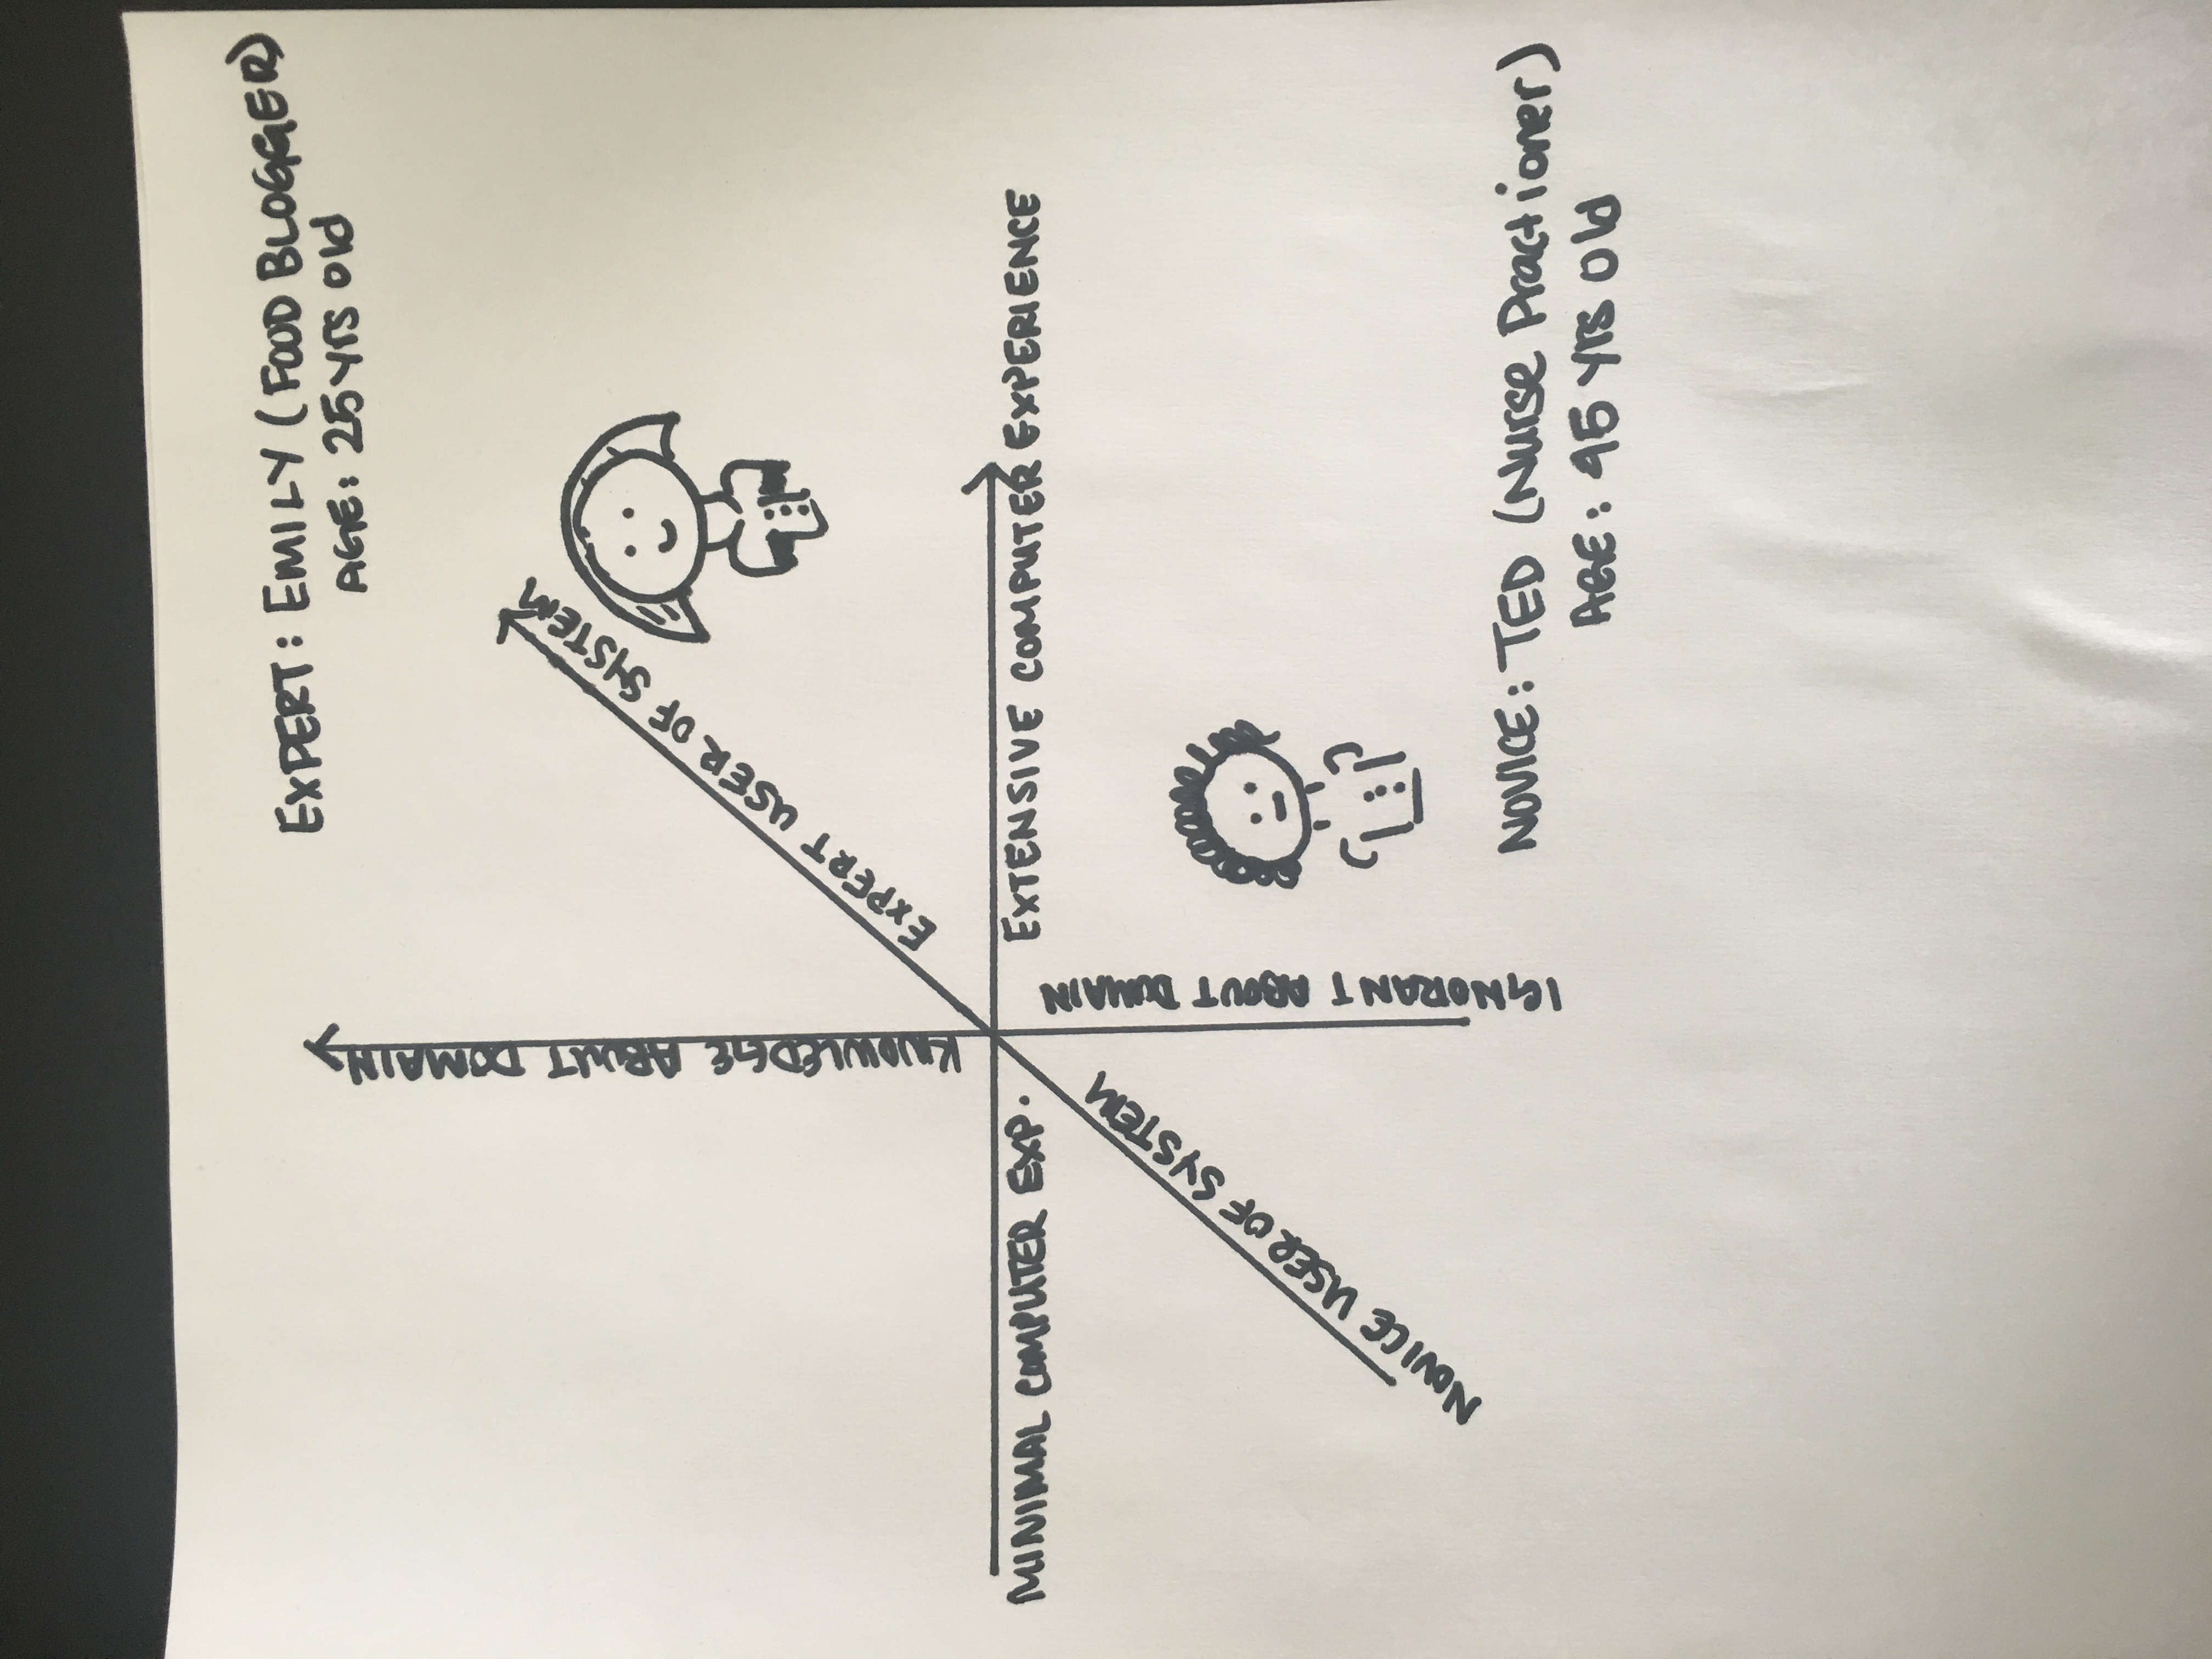 EXPERT: EMILY (FOOD BLOGGER)
AGE: 25 yrs old
KNOWLEDGE ABOUT DOMAIN
EXPERT USER OF SYSTEM
MINIMAL COMPUTER EXP.
EXTENSIVE COMPUTER EXPERIENCE
NOVICE USER OF SYSTEM
IGNORANT ABOUT DOMAIN
NOVICE: TED (Nurse Practioner)
AGE: 45 yrs old